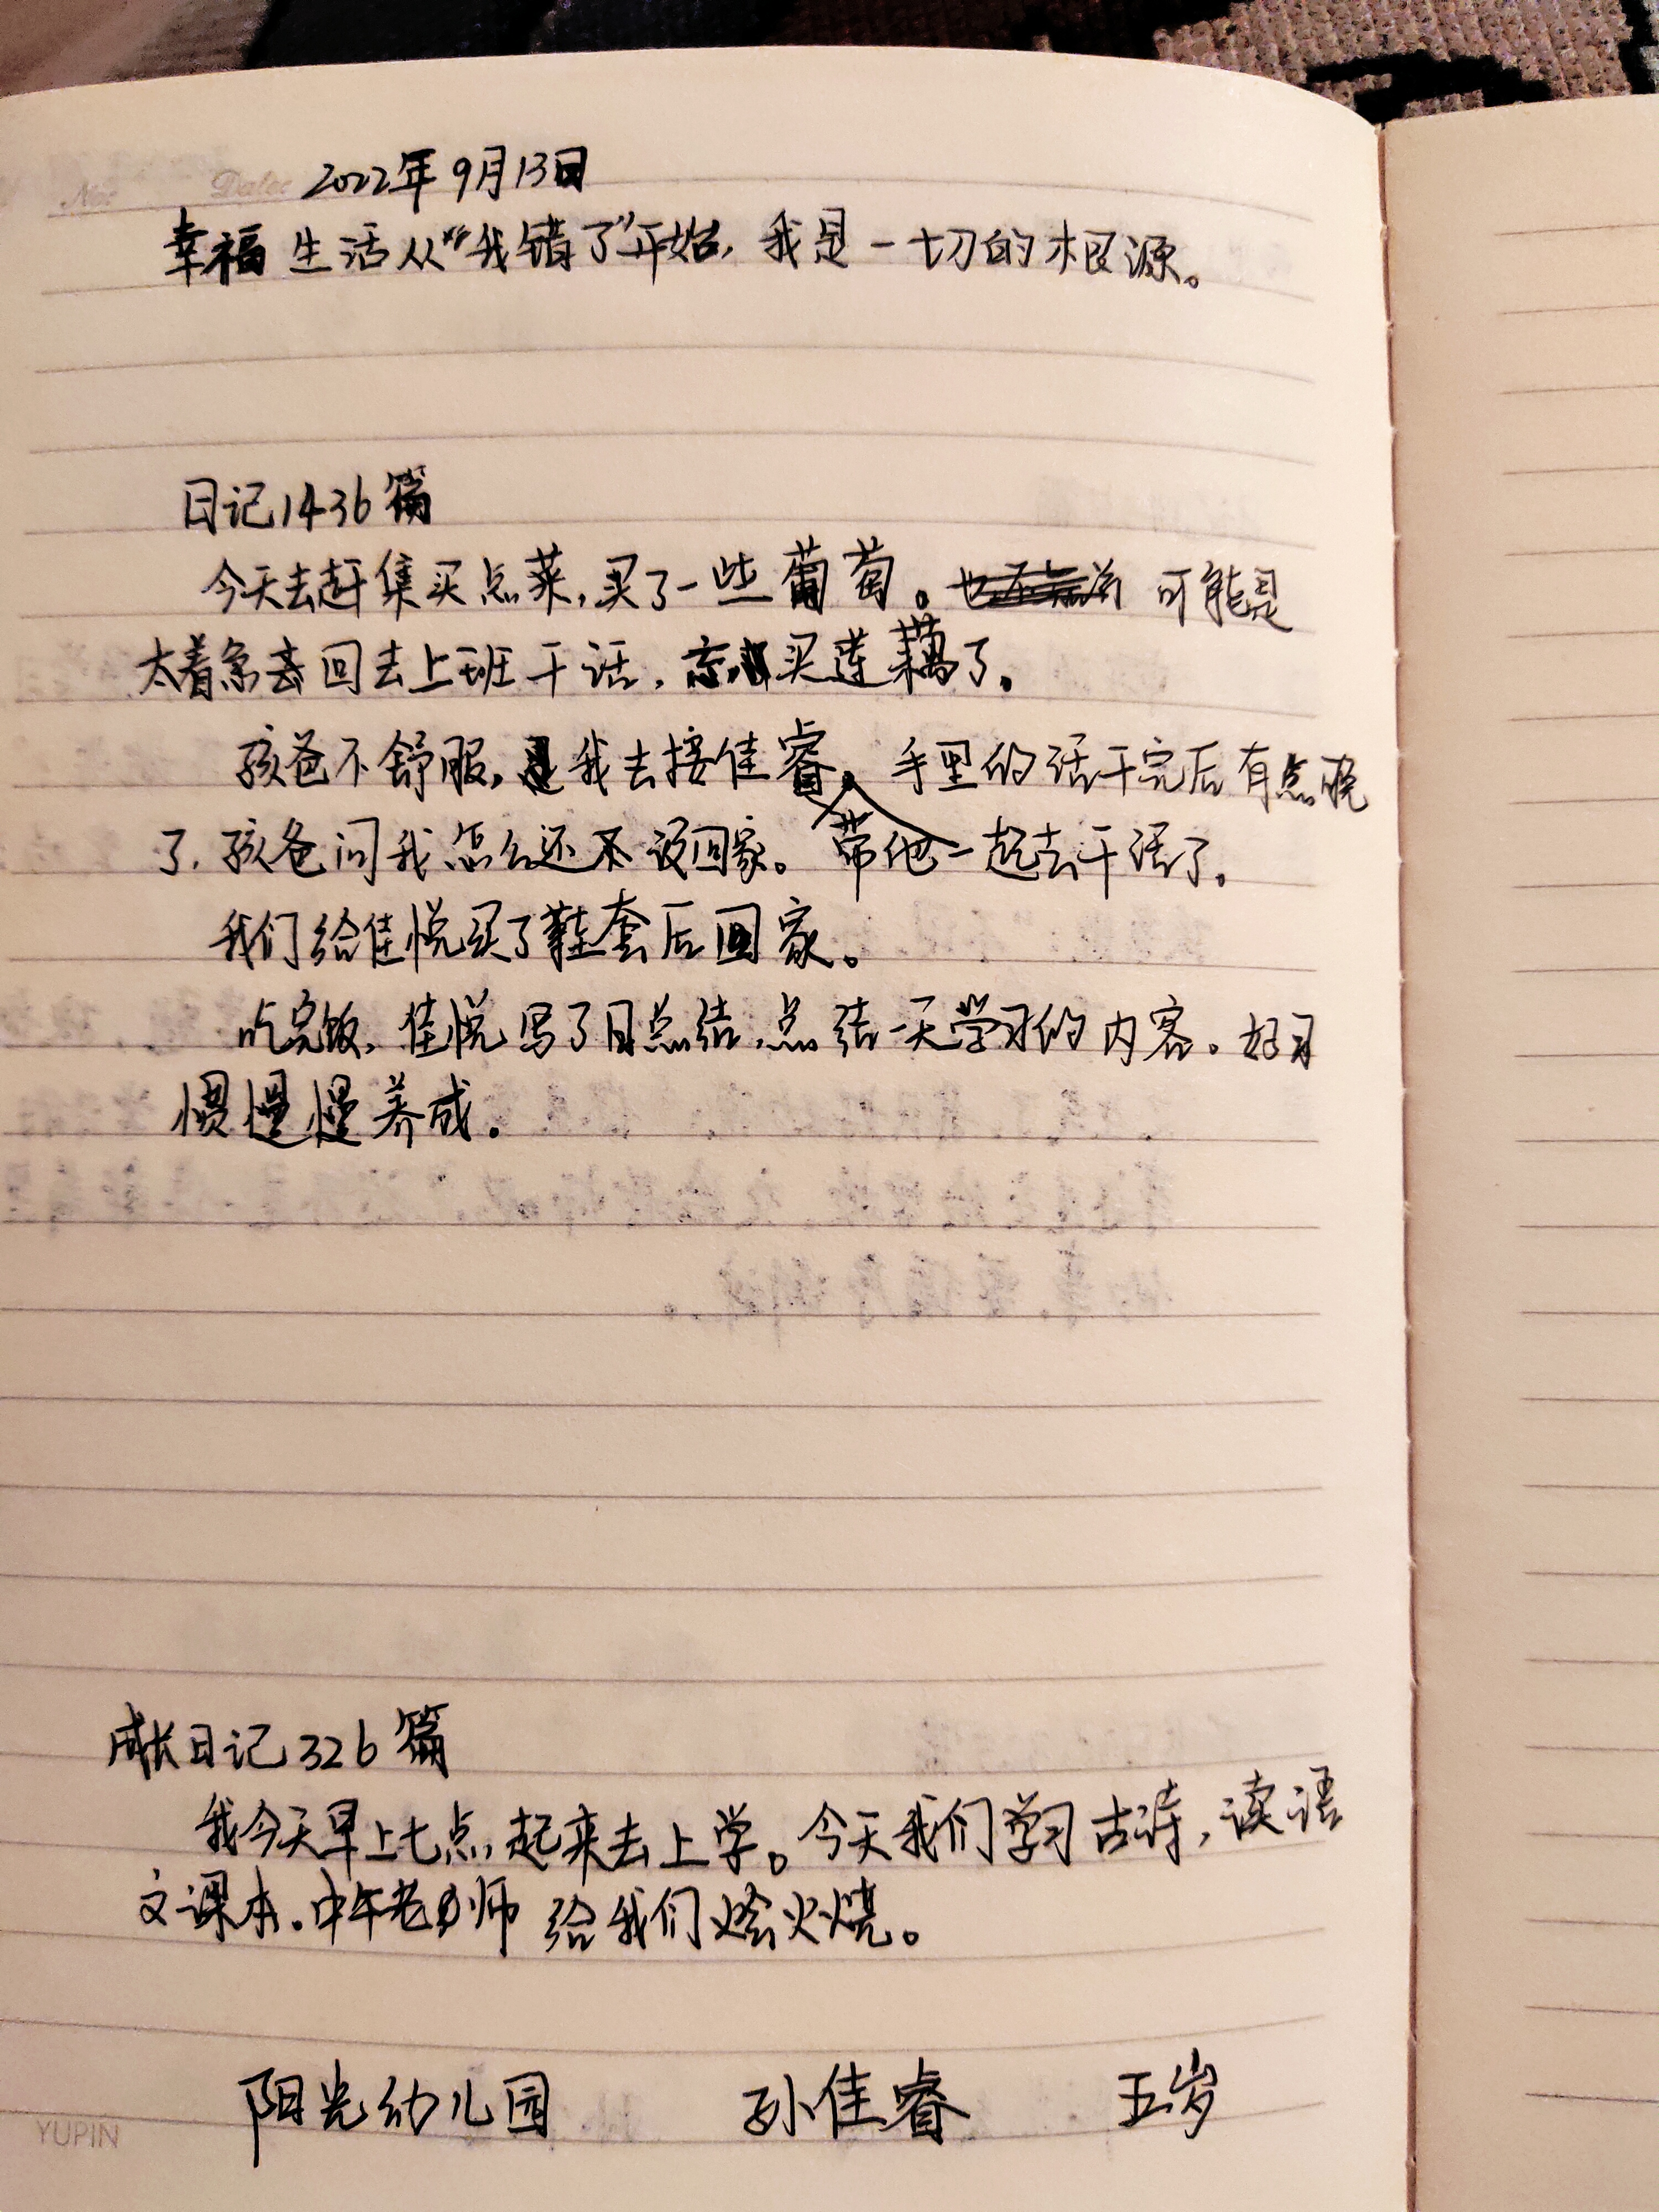 No: Date: 2022年9月13日
幸福生活从“我错了”开始，我是一切的根源。
日记1436篇
今天去赶集买点菜，买了一些葡萄。可能是
太着急去回去上班干活，忘买莲藕了。
孩爸不舒服，是我去接佳睿。手里的活干完后有点晚
了，孩爸问我怎么还不该回家。带他一起去干活了。
我们给佳悦买了鞋套后回家。
吃完饭，佳悦写了日总结，总结一天学习的内容。好习
惯慢慢养成。
成长日记326篇
我今天早上七点，起来去上学。今天我们学习古诗，读语
文课本。中午老师给我们烩火烧。
阳光幼儿园 孙佳睿 五岁
YUPIN